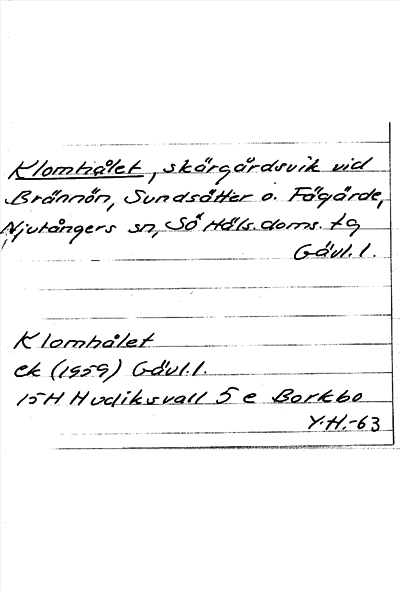 Klomhålet, skärgårdsvik vid
Brännön, Sundsätter o. Fågärde,
Njutångers sn, Sö Häls. doms. tg
Gävl. l.
Klomhålet
ek (1959) Gävl. l.
15H Hudiksvall 5 e Borkbo
Y.H.-63